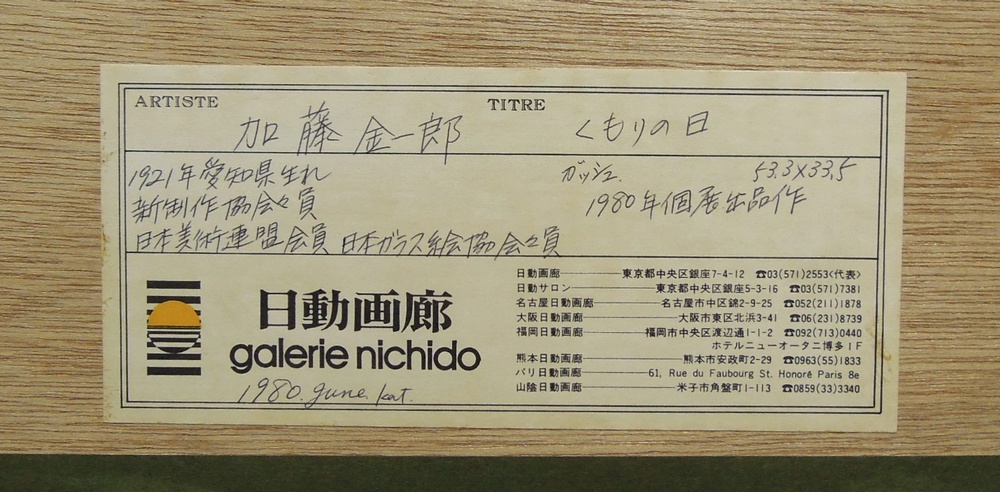 ARTISTE TITRE
加藤金一郎 くもりの日
1921年愛知県生れ ガッシュ. 53.3×33.5
新制作協会々員 1980年個展出品作
日本美術連盟会員 日本ガラス絵協会々員
日動画廊
galerie nichido
1980. june. kat.
日動画廊 東京都中央区銀座7-4-12 ☎03(571)2553<代表>
日動サロン 東京都中央区銀座5-3-16 ☎03(571)7381
名古屋日動画廊 名古屋市中区錦2-9-25 ☎052(211)1878
大阪日動画廊 大阪市東区北浜3-41 ☎06(231)8739
福岡日動画廊 福岡市中央区渡辺通1-1-2 ☎092(713)0440
ホテルニューオータニ博多1F
熊本日動画廊 熊本市安政町2-29 ☎0963(55)1833
パリ日動画廊 61, Rue du Faubourg St. Honoré Paris 8e
山陰日動画廊 米子市角盤町1-113 ☎0859(33)3340